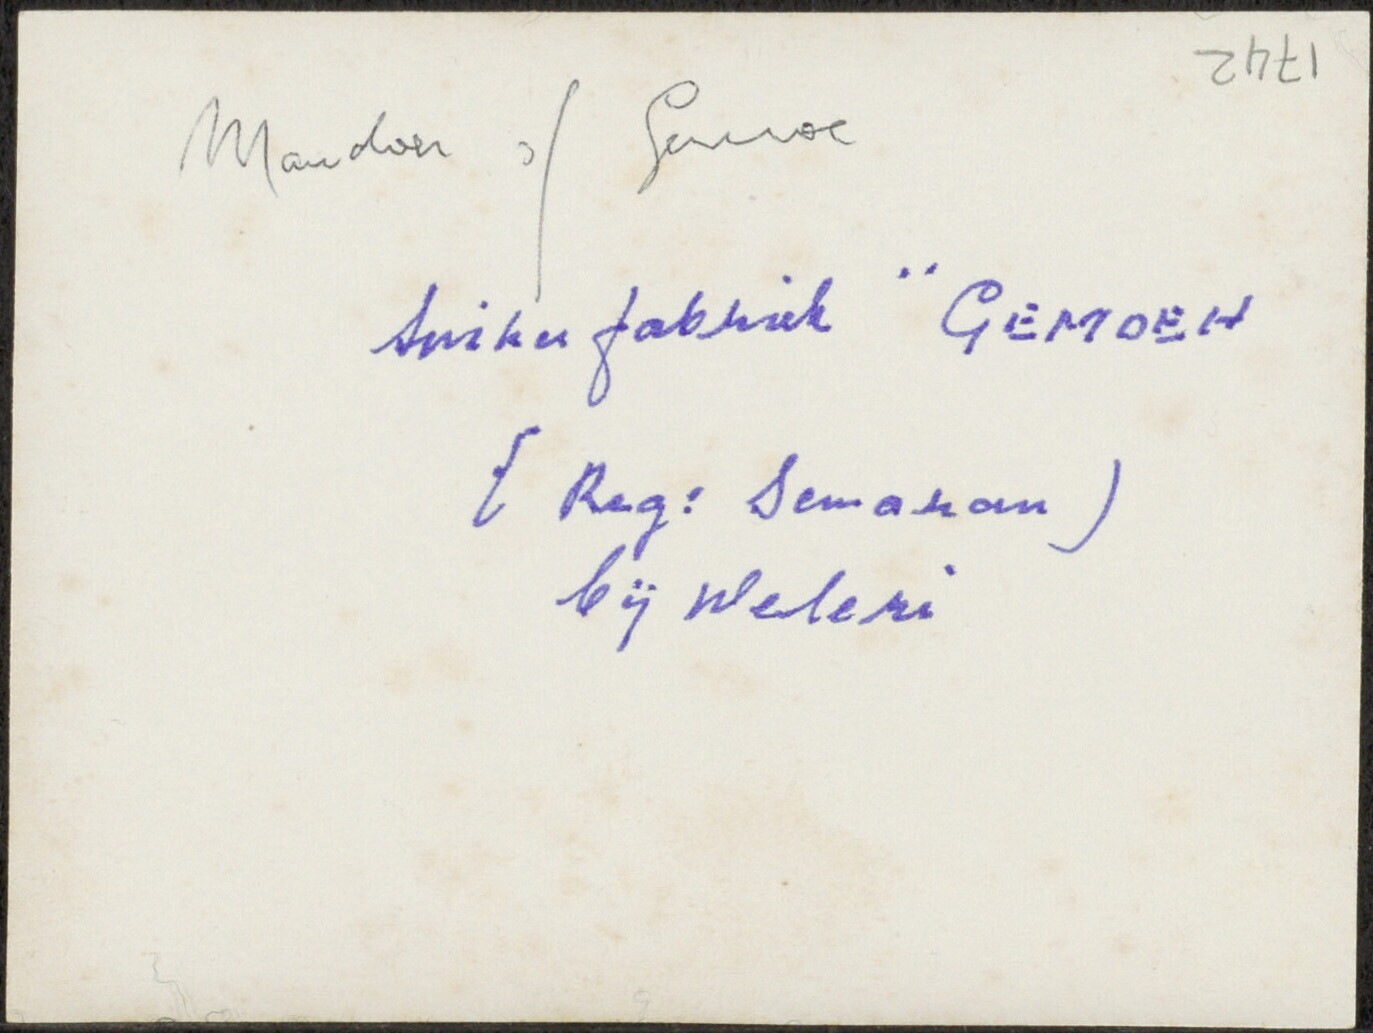 1742
Mandoer of Gemoe
Suiker fabriek "GEMOEH
(Reg: Semaran)
bij Weleri